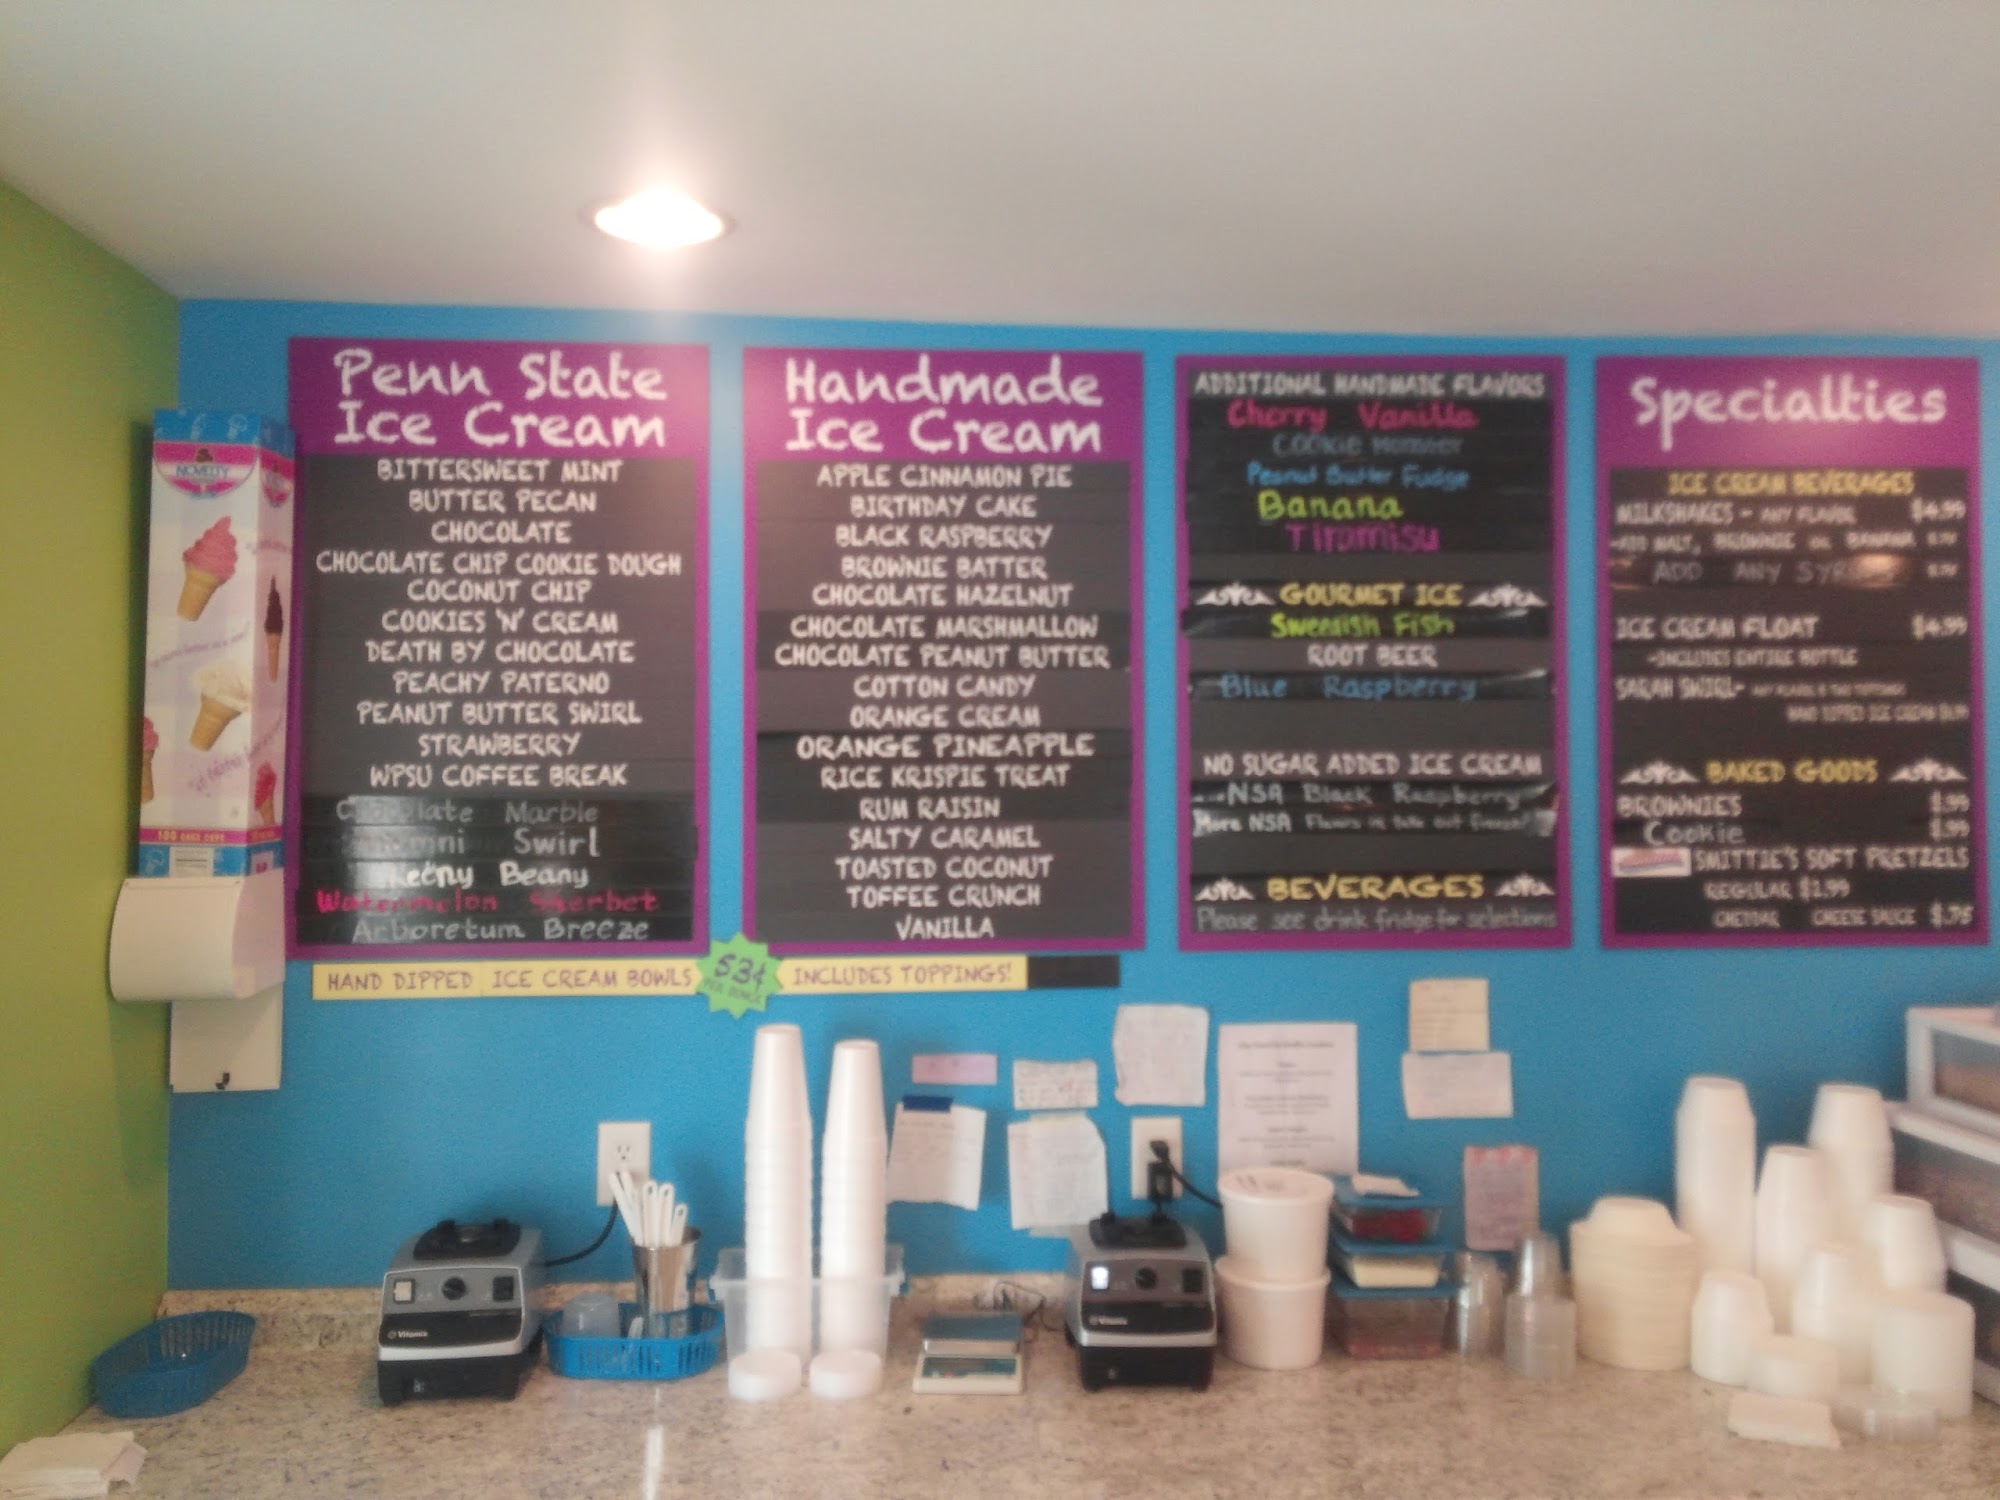 Penn State
Ice Cream
BITTERSWEET MINT
BUTTER PECAN
CHOCOLATE
CHOCOLATE CHIP COOKIE DOUGH
COCONUT CHIP
COOKIES 'N' CREAM
DEATH BY CHOCOLATE
PEACHY PATERNO
PEANUT BUTTER SWIRL
STRAWBERRY
WPSU COFFEE BREAK
Chocolate Marble
Swirl
Keeny Beany
Watermelon Sherbet
Arboretum Breeze
Handmade
Ice Cream
APPLE CINNAMON PIE
BIRTHDAY CAKE
BLACK RASPBERRY
BROWNIE BATTER
CHOCOLATE HAZELNUT
CHOCOLATE MARSHMALLOW
CHOCOLATE PEANUT BUTTER
COTTON CANDY
ORANGE CREAM
ORANGE PINEAPPLE
RICE KRISPIE TREAT
RUM RAISIN
SALTY CARAMEL
TOASTED COCONUT
TOFFEE CRUNCH
VANILLA
ADDITIONAL HANDMADE FLAVORS
Cherry Vanilla
Cookie Monster
Peanut Butter Fudge
Banana
Tiramisu
GOURMET ICE
Swedish Fish
ROOT BEER
Blue Raspberry
NO SUGAR ADDED ICE CREAM
NSA Black Raspberry
More NSA Flavors in take out freezer!
BEVERAGES
Please see drink fridge for selections
Specialties
ICE CREAM BEVERAGES
MILKSHAKES - ANY FLAVOR $4.99
ADD MALT, BROWNIE OR BANANA
ADD ANY
ICE CREAM FLOAT $4.99
-INCLUDES ENTIRE BOTTLE
SARAH SWIRL-
HAND DIPPED ICE CREAM
BAKED GOODS
BROWNIES $.99
Cookie $.99
SMITTIE'S SOFT PRETZELS
REGULAR $1.99
CHEESE SAUCE $.75
HAND DIPPED ICE CREAM BOWLS 53¢ PER OUNCE INCLUDES TOPPINGS!
NOVELTY
Vitamix
Vitamix